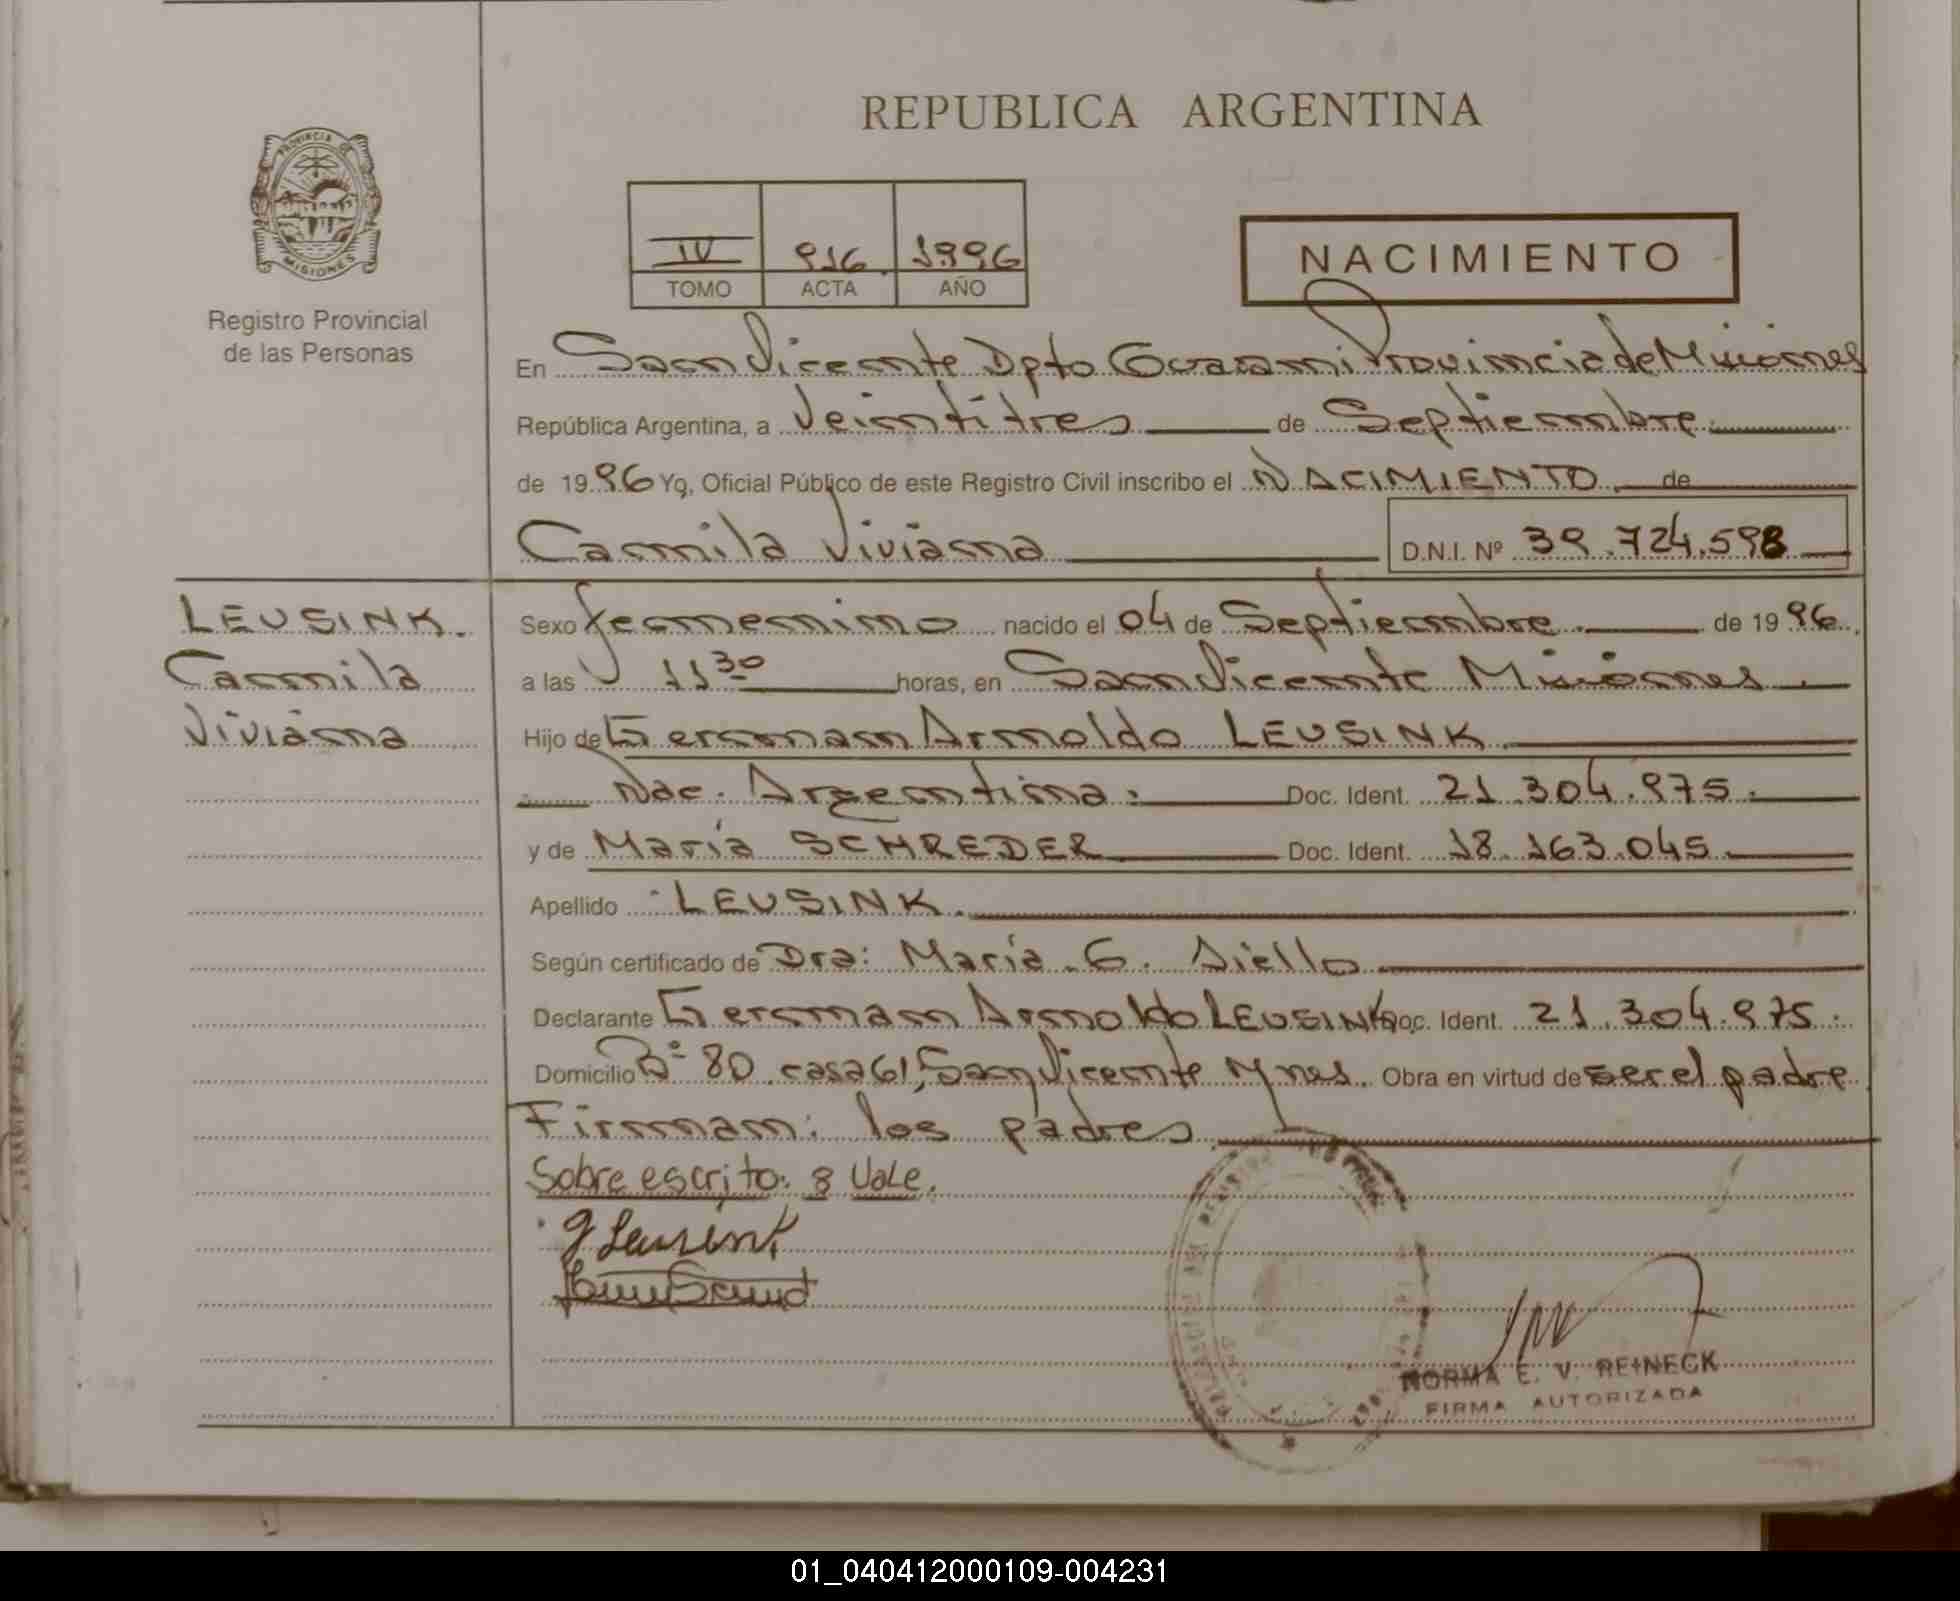 REPUBLICA ARGENTINA
PROVINCIA DE
MISIONES
Registro Provincial
de las Personas
IV 916 1996
TOMO ACTA AÑO
NACIMIENTO
En San Vicente Dpto Guarani Provincia de Misiones
República Argentina, a Veintitres de Septiembre
de 1996 Yo, Oficial Público de este Registro Civil inscribo el NACIMIENTO de
Camila Viviana D.N.I. Nº 39.724.598
LEUSINK.
Camila
Viviana
Sexo femenino nacido el 04 de Septiembre de 1996
a las 11 30 horas, en San Vicente Misiones
Hijo de German Arnoldo LEUSINK
Nac. Argentina. Doc. Ident. 21.304.975.
y de María SCHREDER Doc. Ident. 18.163.045
Apellido LEUSINK.
Según certificado de Dra: María G. Aiello
Declarante German Arnoldo LEUSINK Doc. Ident. 21.304.975.
Domicilio Bº 80 casa 61, San Vicente Mnes. Obra en virtud de ser el padre
Firman: los padres
Sobre escrito: 8 Vale.
G Leusink
NORMA E. V. REINECK
FIRMA AUTORIZADA
01_040412000109-004231